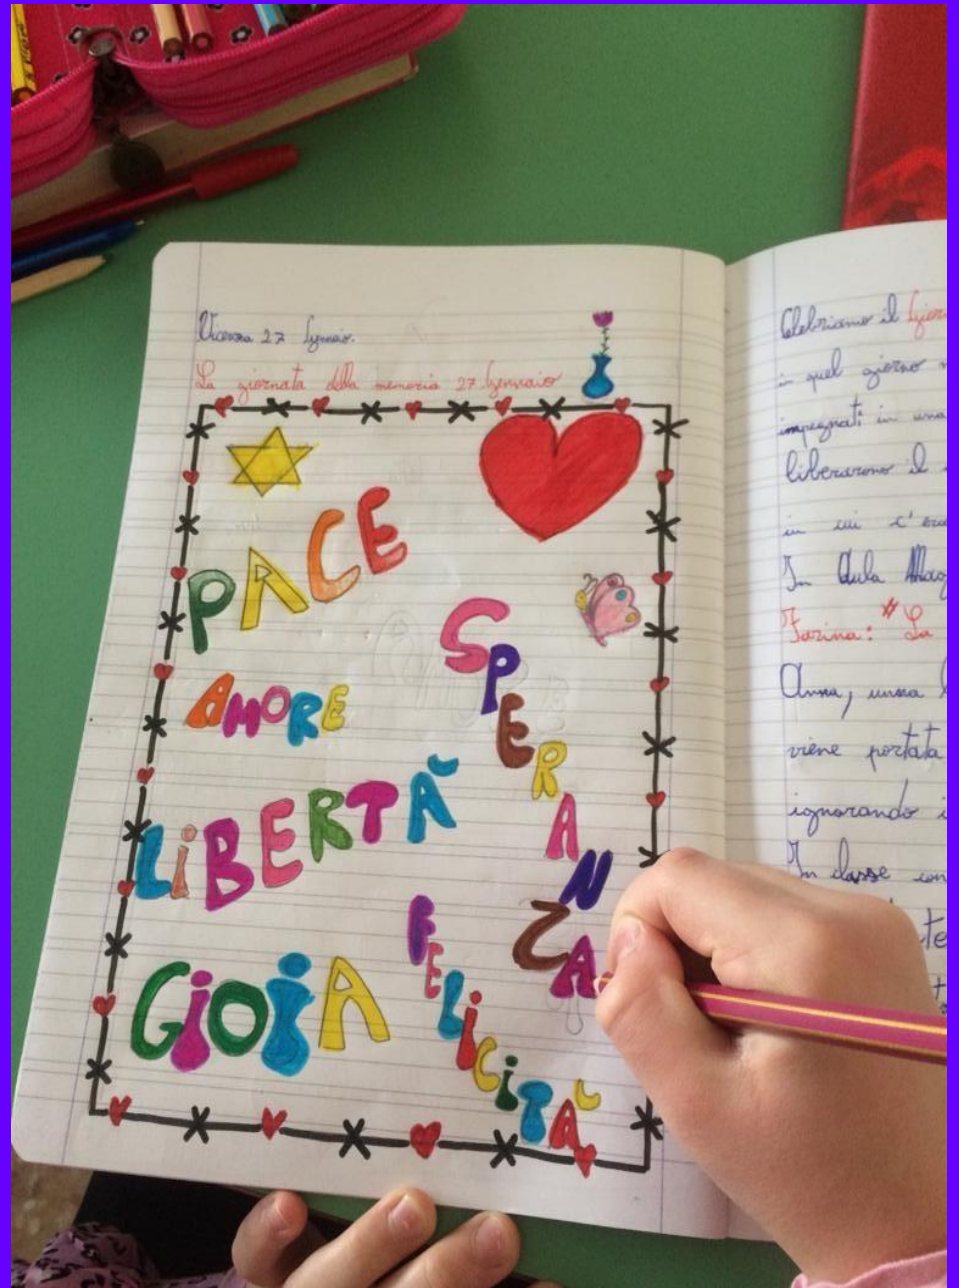 Vicenza 27 Gennaio.
La giornata della memoria 27 Gennaio
PACE
SPERANZA
AMORE
LiBERTÀ
FELiCiTÀ
GiOiA
Celebriamo il
in quel giorno
impegnati in una
liberarono il
in cui c'era
In Aula
Farina: "La
Anna,
viene portata
ignorando
In classe